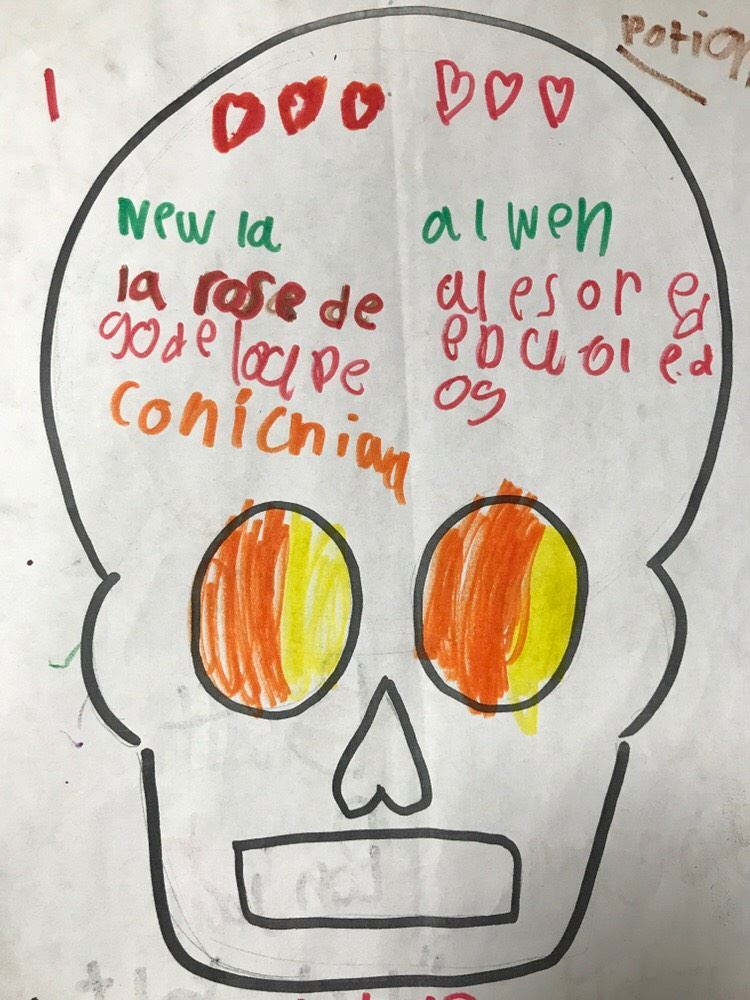 New la
la rose de
gode locl pe
conicnian
al wen
al esor ed
epcl ol ed
og